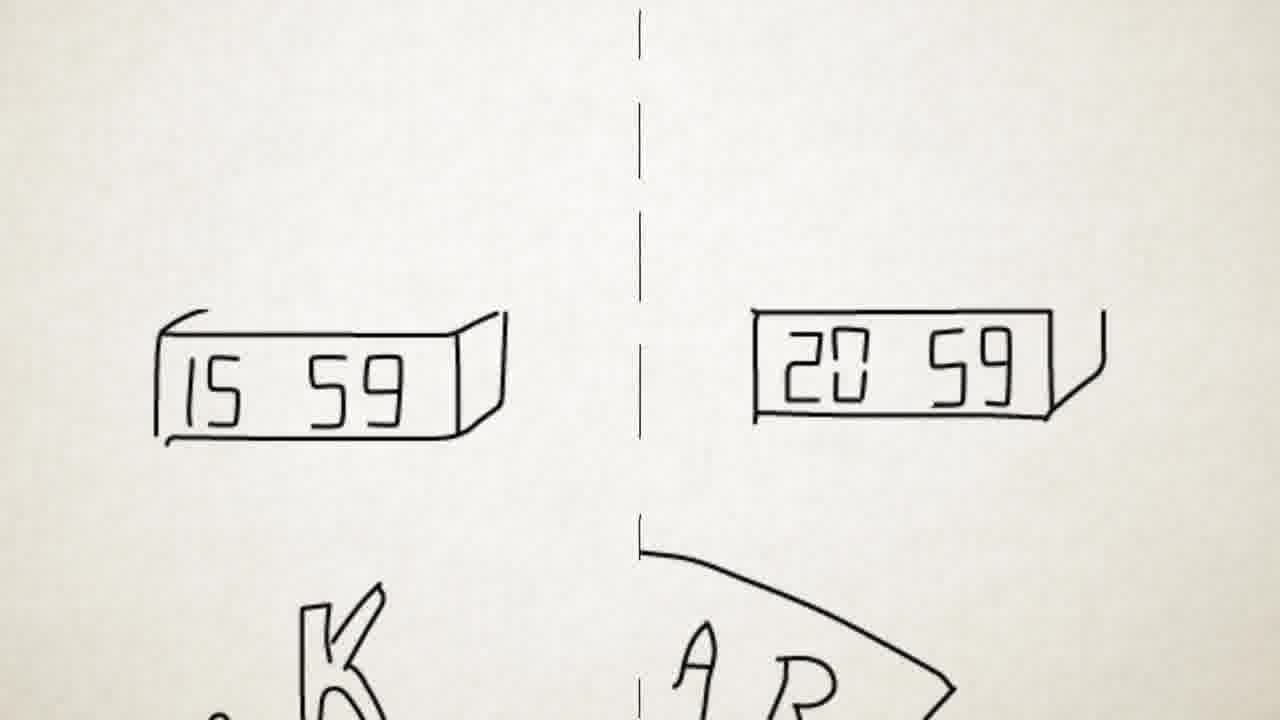 15 59
20 59
K
A R